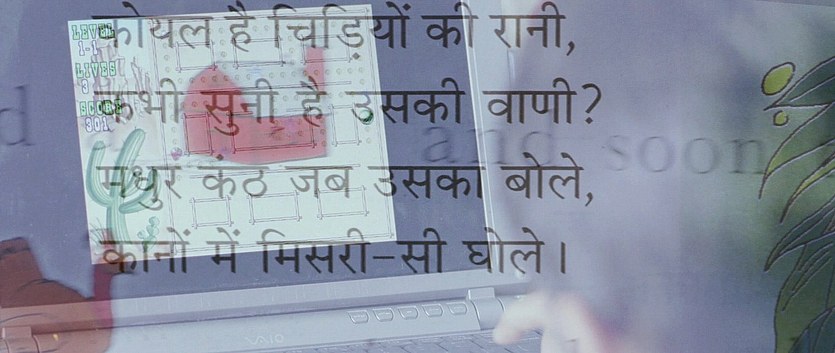 कोयल है चिड़ियों की रानी,
कभी सुनी है उसकी वाणी?
मधुर कंठ जब उसका बोले,
कानों में मिसरी-सी घोले।
LEVEL
1-1
LIVES
3
SCORE
301
d
and soon
VAIO